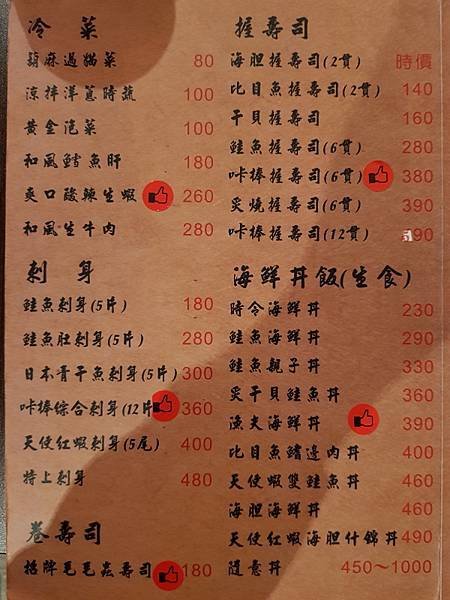 冷菜
胡麻過貓菜 80
涼拌洋蔥時蔬 100
黃金泡菜 100
和風鱈魚肝 180
爽口酸辣生蝦 260
和風生牛肉 280
刺身
鮭魚刺身(5片) 180
鮭魚肚刺身(5片) 280
日本青干魚刺身(5片) 300
咔棒綜合刺身(12片 360
天使紅蝦刺身(5尾) 400
特上刺身 480
卷壽司
招牌毛毛蟲壽司 180
握壽司
海胆握壽司(2貫) 時價
比目魚握壽司(2貫) 140
干貝握壽司 160
鮭魚握壽司(6貫) 280
咔棒握壽司(6貫) 380
炙燒握壽司(6貫) 390
咔棒握壽司(12貫) 90
海鮮丼飯(生食)
時令海鮮丼 230
鮭魚海鮮丼 290
鮭魚親子丼 330
炙干貝鮭魚丼 360
漁夫海鮮丼 390
比目魚鰭邊肉丼 400
天使蝦雙鮭魚丼 460
海胆海鮮丼 460
天使紅蝦海胆什錦丼 490
隨意丼 450～1000